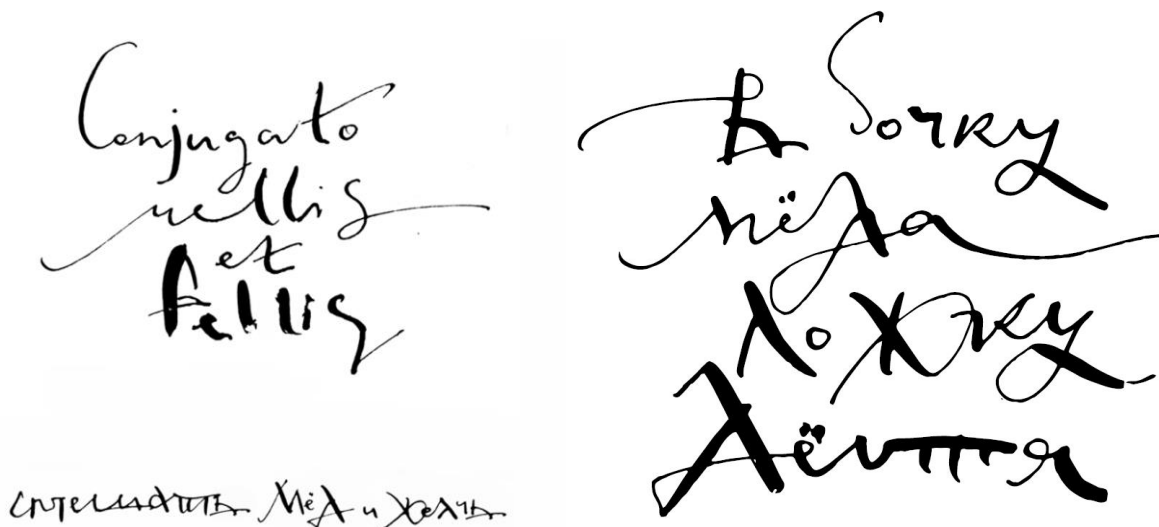 Conjugato
mellis
et
fellis
Мёд и желчь
В бочку
мёда
ложку
дёгтя